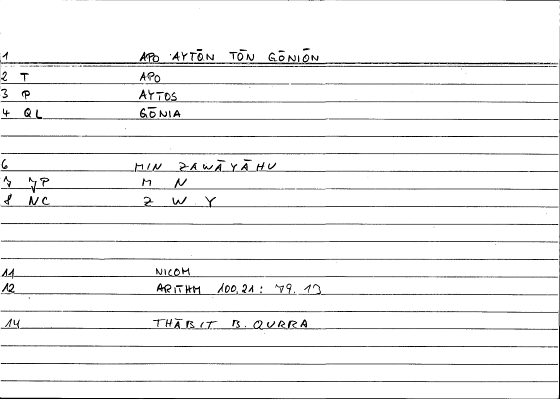 1 APO AYTŌN TŌN GŌNIŌN
2 T APO
3 P AYTOS
4 QL GŌNIA
6 MIN ZAWĀYĀHU
7 7P M N
8 NC Z W Y
11 NICOM
12 ARITHM 100,21: 79.13
14 THĀBIT B. QURRA